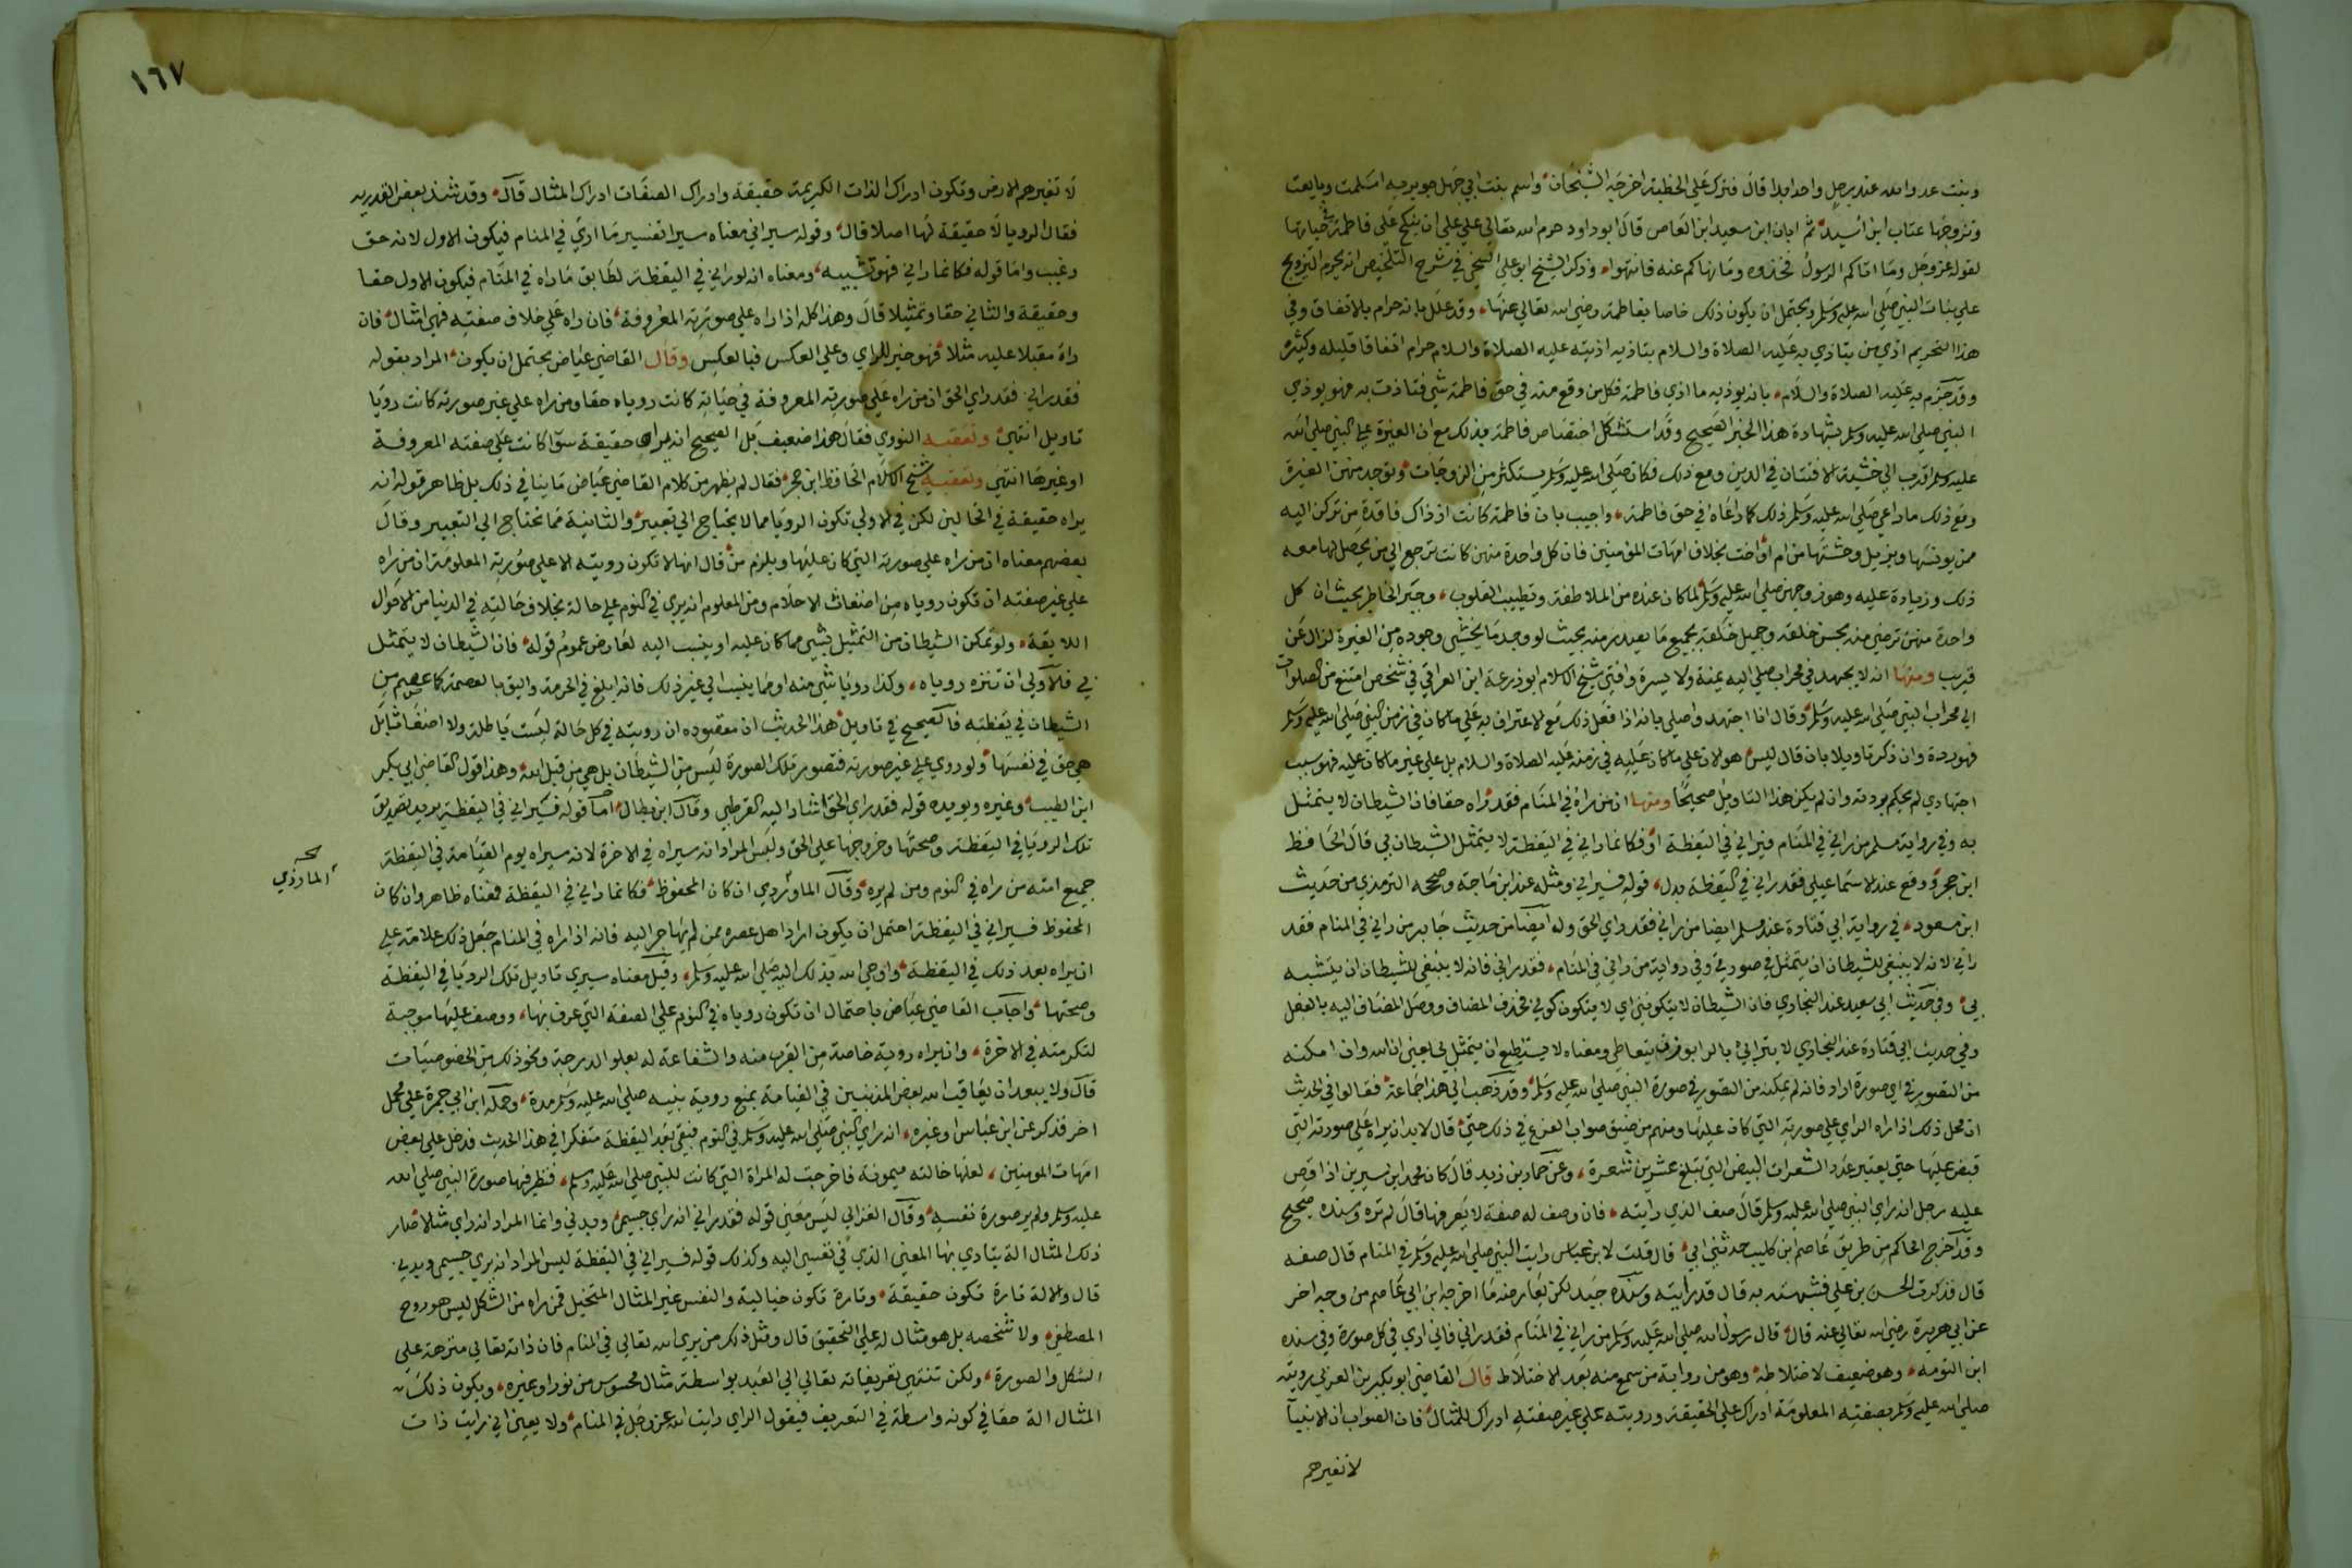 وبنت عدو الله عند رجل واحد ابدا قال فترك علي الخطبة اخرجه الشيخان واسم بنت ابي جهل جويريه اسلمت وبايعت
وتزوجها عتاب ابن اسيد ثم ابان ابن سعيد ابن العاص قال ابو داود حرم الله تعالي علي علي ان ينكح علي فاطمة في حياتها
لقوله عز وجل وما اتاكم الرسول فخذوه وما نهاكم عنه فانتهوا وذكر الشيخ ابو علي السنجي في شرح التلخيص انه يحرم التزويج
علي بنات النبي صلي الله عليه وسلم ويحتمل ان يكون ذلك خاصا بفاطمة رضي الله تعالي عنها وقد علل بانه حرام بالاتفاق وفي
هذا التحريم اذي من يتاذي به عليه الصلاة والسلام بتاذيه اذيته عليه الصلاة والسلام حرام اتفاقا قليله وكثيره
وقد جزم به عليه الصلاة والسلام بانه يوذيه ما اذي فاطمة فكل من وقع منه في حق فاطمة شي فتاذت به فهو يوذي
النبي صلي الله عليه وسلم بشهادة هذا الخبر الصحيح وقد استشكل اختصاص فاطمة بذلك مع ان الغيرة علي النبي صلي الله
عليه وسلم اقرب الي خشية الافتتان في الدين ومع ذلك فكان صلي الله عليه وسلم يستكثر من الزوجات وتوجد منهن الغيرة
ومع ذلك ما راعي صلي الله عليه وسلم ذلك كما راعاه في حق فاطمة واجيب بان فاطمة كانت اذ ذاك فاقدة من تركن اليه
ممن يونسها ويزيل وحشتها من ام او اخت بخلاف امهات المومنين فان كل واحدة منهن كانت ترجع الي من يحصل لها معه
ذلك وزيادة عليه وهو زوجهن صلي الله عليه وسلم لما كان عنده من الملاطفة وتطييب القلوب وجبر الخاطر بحيث ان كل
واحدة منهن ترضي منه بحسن خلقه وجميل خلقه بجميع ما يصدر منه بحيث لو وجد ما يخشي وجوده من الغيرة لزال عن
قريب ومنها انه لا يجتهد في محراب صلي اليه يمنة ولا يسرة وافتي شيخ الاسلام ابو زرعة ابن العراقي في شخص امتنع من الصلوات
الي محراب النبي صلي الله عليه وسلم وقال انا اجتهد واصلي بانه اذا فعل ذلك مع الاعتراف به علي ما كان في زمن النبي صلي الله عليه وسلم
فهو ردة وان ذكر تاويلا بان قال ليس هو الان علي ما كان عليه في زمنه عليه الصلاة والسلام بل علي غير ما كان عليه فهو سبب
اجتهادي لم يحكم بردته وان لم يكن هذا التاويل صحيحا ومنها ان من راه في المنام فقد راه حقا فان الشيطان لا يتمثل
به وفي رواية مسلم من راني في المنام فسيراني في اليقظة او فكانما راني في اليقظة لا يتمثل الشيطان بي قال الحافظ
ابن حجر ووقع عند الاسماعيلي فقد راني في اليقظة بدل قوله فسيراني ومثله عند ابن ماجة وصححه الترمذي من حديث
ابن مسعود في رواية ابي قتادة عند مسلم ايضا من راني فقد راي الحق وله ايضا من حديث جابر من راني في المنام فقد
راني لانه لا ينبغي للشيطان ان يتمثل في صورتي وفي رواية من راني في المنام فقد راني فانه لا ينبغي للشيطان ان يتشبه
بي وفي حديث ابي سعيد عند البخاري فان الشيطان لا يتكونني اي لا يتكون كوني فحذف المضاف ووصل المضاف اليه بالفعل
وفي حديث ابي قتادة عند البخاري لا يترايي بالرا بوزن يتعاطي ومعناه لا يستطيع ان يتمثل بي يعني ان الله وان امكنه
من التصور في اي صورة اراد فانه لم يمكنه من التصور في صورة النبي صلي الله عليه وسلم وقد ذهب الي هذا جماعة فقالوا في الحديث
ان محل ذلك اذا راه الراي علي صورته التي كان عليها ومنهم من ضيق في ذلك حتي قال لا بد ان يراه علي صورته التي
قبض عليها حتي يعتبر عدد الشعرات البيض التي تبلغ عشرين شعرة وعن حماد بن زيد قال كان محمد ابن سيرين اذا قص
عليه رجل انه راي النبي صلي الله عليه وسلم قال صف الذي رايته فان وصف له صفة لا يعرفها قال لم تره وسنده صحيح
وقد اخرج الحاكم من طريق عاصم ابن كليب حدثني ابي قال قلت لابن عباس رايت النبي صلي الله عليه وسلم في المنام قال صفه
قال فذكرت الحسن بن علي فشبهته به قال قد رايته وسنده جيد لكن يعارضه ما اخرجه ابن ابي عاصم من وجه اخر
عن ابي هريرة رضي الله تعالي عنه قال قال رسول الله صلي الله عليه وسلم من راني في المنام فقد راني فاني اري في كل صورة وفي سنده
ابن التومه وهو ضعيف لاختلاطه وهو من رواية من سمع منه بعد الاختلاط قال القاضي ابو بكر بن العربي رويته
صلي الله عليه وسلم بصفته المعلومة ادراك علي الحقيقة ورويته علي غير صفته ادراك للمثال فان الصواب ان الانبيا
لا تغيرهم
١٦٧
لا تغيرهم الارض وتكون ادراك الذات الكريمة حقيقة وادراك الصفات ادراك المثال قال وقد شذ بعض القدرية
فقال الرويا لا حقيقة لها اصلا قال وقوله سيراني معناه سيرا تفسير ما اري في المنام فيكون الاول لانه حق
وغيب واما قوله فكانما راني فهو تشبيه ومعناه انه لو راني في اليقظة لطابق ما راه في المنام فيكون الاول حقا
وحقيقة والثاني حقا وتمثيلا قال وهذا كله اذا راه علي صورته المعروفة فان راه علي خلاف صفته فهي امثال فان
راه مقبلا عليه مثلا فهو خير للراي وعلي العكس فبالعكس وقال القاضي عياض يحتمل ان يكون المراد بقوله
فقد راني فقد راي الحق ان من راه علي صورته المعروفة في حياته كانت روياه حقا ومن راه علي غير صورته كانت رويا
تاويل انتهي وتعقبه النووي فقال هذا ضعيف بل الصحيح انه يراه حقيقة سوا كانت علي صفته المعروفة
او غيرها انتهي وتعقبه شيخ الاسلام الحافظ ابن حجر فقال لم يظهر من كلام القاضي عياض ما ينافي ذلك بل ظاهر قوله انه
يراه حقيقة في الحالين لكن في الاولي تكون الرويا مما لا يحتاج الي تعبير والثانية مما تحتاج الي التعبير وقال
بعضهم معناه ان من راه علي صورته التي كان عليها ويلزم من قال انها لا تكون رويته الا علي صورته المعلومة ان من راه
علي غير صفته ان تكون روياه من اضغاث الاحلام ومن المعلوم انه يري في النوم علي حالة بخلاف حالته في الدنيا من الاحوال
اللايقة ولو تمكن الشيطان من التمثيل بشيي مما كان عليه او ينسب اليه لعارض عموم قوله فان الشيطان لا يتمثل
بي فالاولي ان تنزه روياه وكذا رويا شي منه او مما ينسب الي غير ذلك فانه ابلغ في الحرمة واليق بالعصمة كما عصم من
الشيطان في يقظته فالصحيح في تاويل هذا الحديث ان مقصوده ان رويته في كل حالة ليست باطلة ولا اضغاثا بل
هي حق في نفسها ولو روي علي غير صورته فتصور تلك الصورة ليس من الشيطان بل هي من قبل الله وهذا قول القاضي ابي بكر
ابن الطيب وغيره ويويده قوله فقد راي الحق اشار اليه القرطبي وقال ابن بطال اما قوله فسيراني في اليقظة يريد تصديق
تلك الرويا في اليقظة وصحتها وخروجها علي الحق وليس المراد انه سيراه في الاخرة لانه سيراه يوم القيامة في اليقظة
جميع امته من راه في النوم ومن لم يره وقال الماوردي ان كان المحفوظ فكانما راني في اليقظة فمعناه ظاهر وان كان
الماوردي
المحفوظ فسيراني في اليقظة احتمل ان يكون اراد اهل عصره ممن لم يهاجر اليه فانه اذا راه في المنام جعل ذلك علامة علي
ان يراه بعد ذلك في اليقظة واوحي الله بذلك اليه صلي الله عليه وسلم وقيل معناه سيري تاويل تلك الرويا في اليقظة
وصحتها واجاب القاضي عياض باحتمال ان تكون روياه في النوم علي الصفة التي عرف بها ووصف عليها موجبة
لتكرمته في الاخرة وان يراه روية خاصة من القرب منه والشفاعة له بعلو الدرجة ونحو ذلك من الخصوصيات
قال ولا يبعد ان يعاقب الله بعض المذنبين في القيامة بمنع روية نبيه صلي الله عليه وسلم مدة وحمله ابن ابي جمرة علي محمل
اخر فذكر عن ابن عباس او غيره انه راي النبي صلي الله عليه وسلم في النوم فبقي بعد اليقظة متفكرا في هذا الحديث فدخل علي بعض
امهات المومنين لعلها خالته ميمونة فاخرجت له المراة التي كانت للنبي صلي الله عليه وسلم فنظر فيها صورة النبي صلي الله
عليه وسلم ولم ير صورة نفسه وقال الغزالي ليس معني قوله فقد راني انه راي جسمي وبدني وانما المراد انه راي مثالا صار
ذلك المثال الة يتادي بها المعني الذي في نفسي اليه وكذلك قوله فسيراني في اليقظة ليس المراد انه يري جسمي وبدني
قال والالة تارة تكون حقيقة وتارة تكون خيالية والنفس غير المثال المتخيل فمن راه من الشكل ليس هو روح
المصطفي ولا شخصه بل هو مثال له علي التحقيق قال ومثل ذلك من يري الله تعالي في المنام فان ذاته تعالي منزهة علي
الشكل والصورة ولكن تنتهي تعريفاته تعالي الي العبد بواسطة مثال محسوس من نور او غيره ويكون ذلك
المثال الة حقا في كونه واسطة في التعريف فيقول الراي رايت الله عز وجل في المنام ولا يعني اني رايت ذات